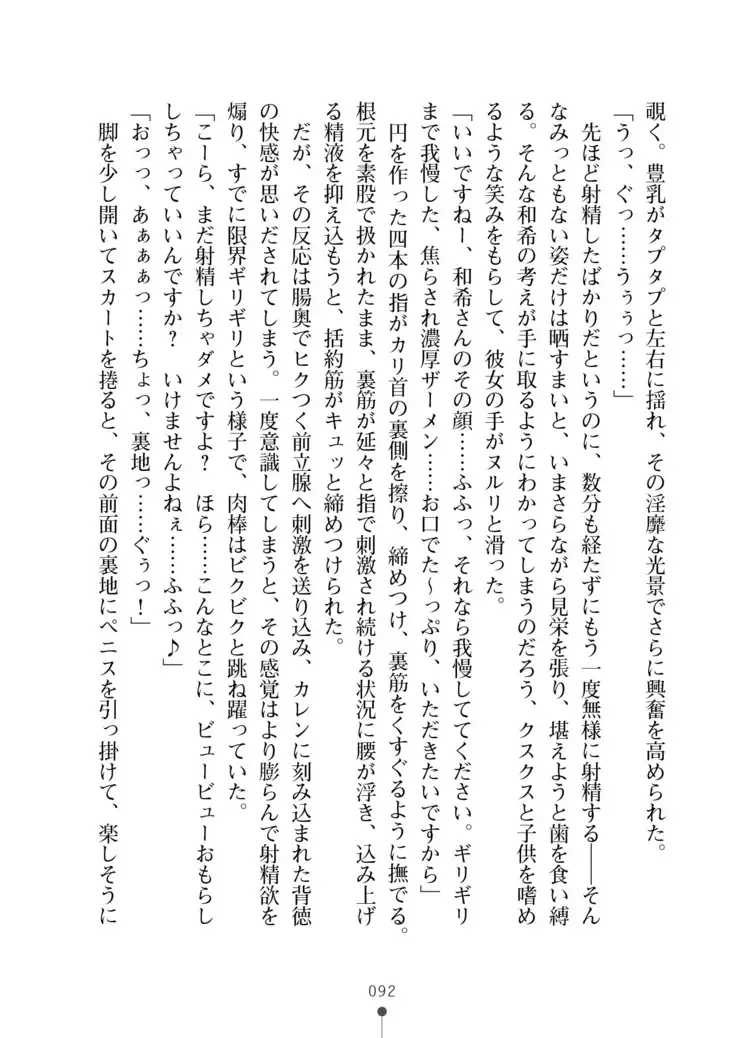 覗く。豊乳がタプタプと左右に揺れ、その淫靡な光景でさらに興奮を高められた。
「うっ、ぐっ……うぅぅっ……」
　先ほど射精したばかりだというのに、数分も経たずにもう一度無様に射精する――そん
なみっともない姿だけは晒すまいと、いまさらながら見栄を張り、堪えようと歯を食い縛
る。そんな和希の考えが手に取るようにわかってしまうのだろう、クスクスと子供を嗜め
るような笑みをもらして、彼女の手がヌルリと滑った。
「いいですねー、和希さんのその顔……ふふっ、それなら我慢しててください。ギリギリ
まで我慢した、焦らされ濃厚ザーメン……お口でた～っぷり、いただきたいですから」
　円を作った四本の指がカリ首の裏側を擦り、締めつけ、裏筋をくすぐるように撫でる。
根元を素股で扱かれたまま、裏筋が延々と指で刺激され続ける状況に腰が浮き、込み上げ
る精液を抑え込もうと、括約筋がキュッと締めつけられた。
　だが、その反応は腸奥でヒクつく前立腺へ刺激を送り込み、カレンに刻み込まれた背徳
の快感が思いだされてしまう。一度意識してしまうと、その感覚はより膨らんで射精欲を
煽り、すでに限界ギリギリという様子で、肉棒はビクビクと跳ね躍っていた。
「こーら、まだ射精しちゃダメですよ？　ほら……こんなとこに、ビュービューおもらし
しちゃっていいんですか？　いけませんよねぇ……ふふっ♪」
「おっっ、あぁぁぁっ……ちょっ、裏地っ……ぐぅっ！」
　脚を少し開いてスカートを捲ると、その前面の裏地にペニスを引っ掛けて、楽しそうに
092